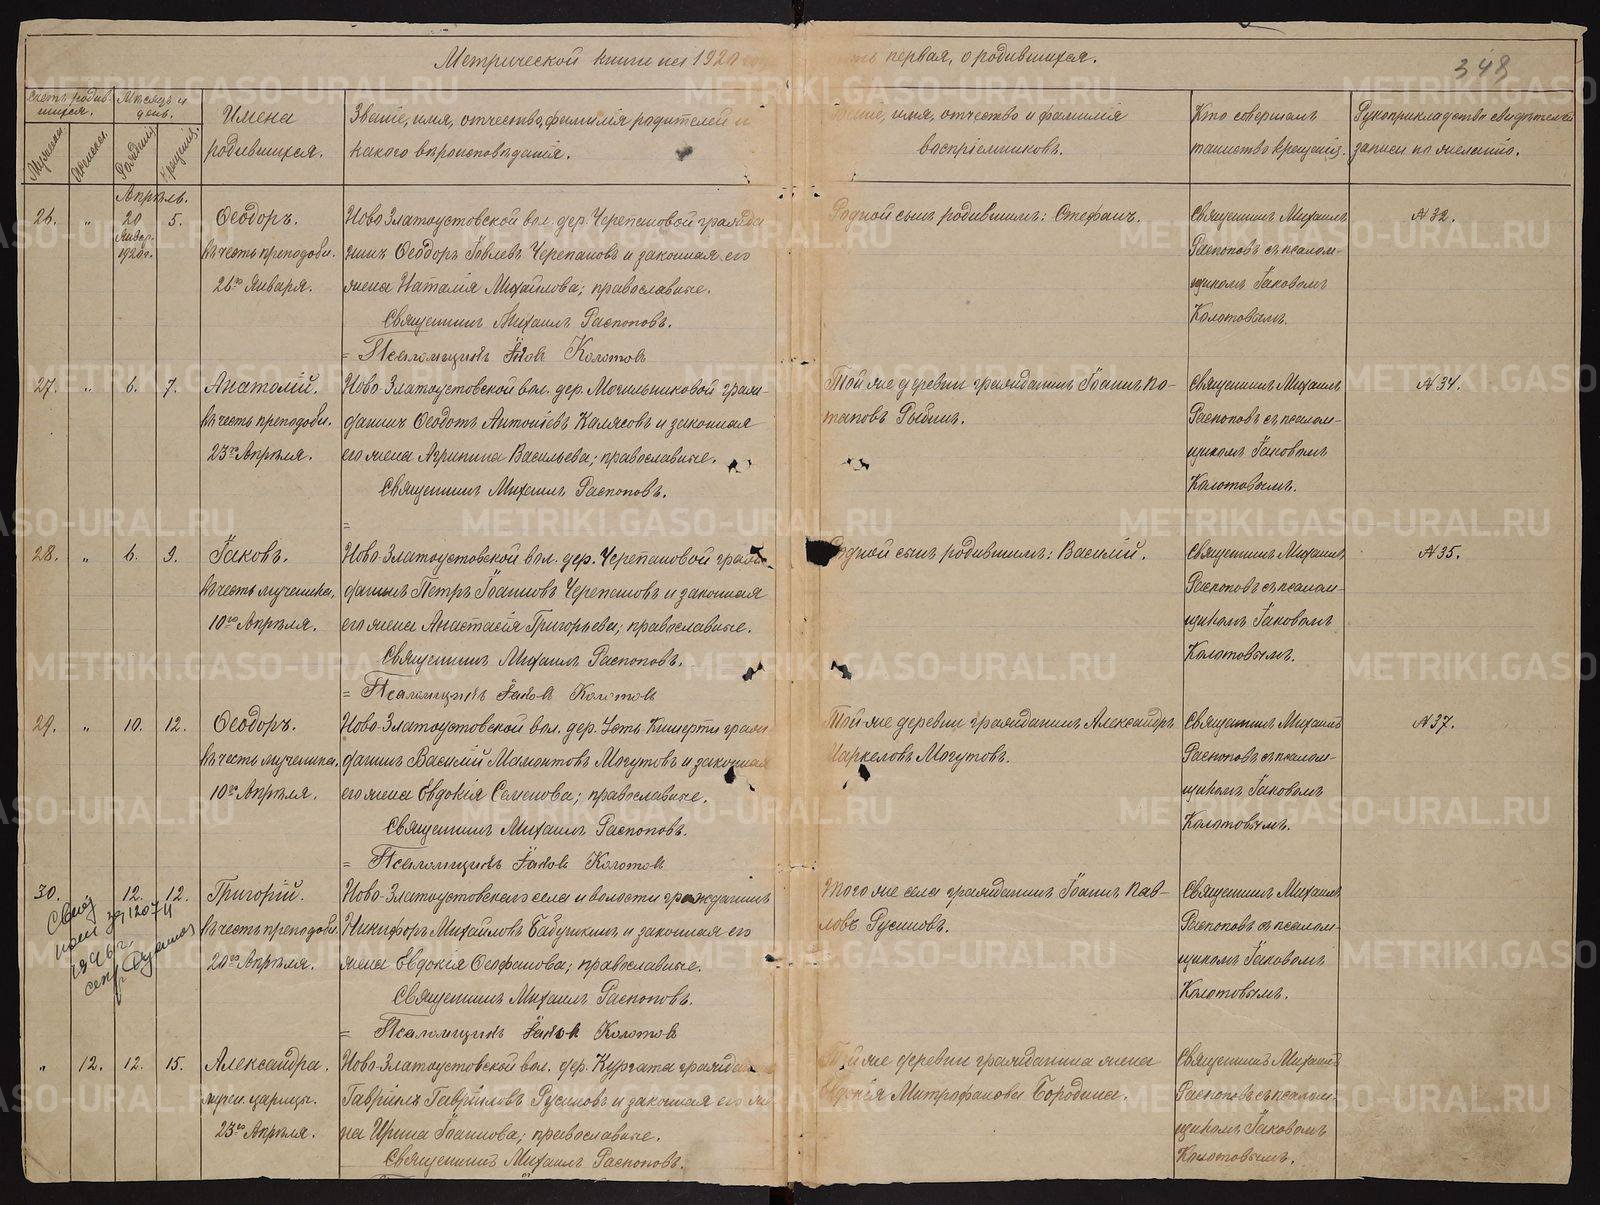 Метрической книги на 1920 первая, о родившихся.
348
Счетъ родив-
шихся.
Мѣсяцъ и
день.
Мужеска.
Женска.
Рожденія.
Крещенія.
Имена
родившихся.
Званіе, имя, отчество, фамилія родителей и
какого вѣроисповѣданія.
имя, отчество и фамилія
воспріемниковъ.
Кто совершалъ
таинство крещенія.
Рукоприкладство свидѣтелей
записи по желанію.
Апрѣль.
26. " 20 Январ. 1920г. 5.
Ѳеодоръ.
въ честь преподобн.
26го Января.
Ново-Златоустовской вол. дер. Черепановой гражда
нинъ Ѳеодоръ Іовлевъ Черепановъ и законная его
жена Наталія Михайлова; православные.
Священникъ Михаилъ Распоповъ.
= Псаломщикъ Іаков Колотов
Родной сынъ родившимъ: Стефанъ.
Священникъ Михаилъ
Распоповъ съ псалом-
щикомъ Іаковомъ
Колотовымъ.
№ 32.
27. " 6. 7.
Анатолій.
въ честь преподобн.
23го Апрѣля.
Ново-Златоустовской вол. дер. Могильниковой граж-
данинъ Ѳеодотъ Антоніевъ Калясовъ и законная
его жена Агрипина Васильева; православные.
Священникъ Михаилъ Распоповъ.
=
Той же деревни гражданинъ Іоаннъ По-
таповъ Рыбинъ.
Священникъ Михаилъ
Распоповъ съ псалом-
щикомъ Іаковомъ
Колотовымъ.
№ 34.
28. " 6. 9.
Іаковъ.
въ честь мученика,
10го Апрѣля.
Ново-Златоустовской вол. дер. Черепановой граж-
данинъ Петръ Іоанновъ Черепановъ и законная
его жена Анастасія Григорьева; православные.
Священникъ Михаилъ Распоповъ.
= Псаломщикъ Іаков Колотов
Родной сынъ родившимъ: Василій.
Священникъ Михаилъ
Распоповъ съ псалом-
щикомъ Іаковомъ
Колотовымъ.
№ 35.
29. " 10. 12.
Ѳеодоръ.
въ честь мученика,
10го Апрѣля.
Ново-Златоустовской вол. дер. Усть-Кишерти граж
данинъ Василій Мамонтовъ Могутовъ и законная
его жена Евдокія Семенова; православные.
Священникъ Михаилъ Распоповъ.
= Псаломщикъ Іаков Колотов
Той-же деревни гражданинъ Александръ
Маркеловъ Могутовъ.
Священникъ Михаилъ
Распоповъ съ псалом-
щикомъ Іаковомъ
Колотовымъ.
№ 37.
30. 12. 12.
Григорій.
въ честь преподобн.
20го Апрѣля.
Ново-Златоустовскаго села и волости гражданинъ
Никифоръ Михайловъ Бабушкинъ и законная его
жена Евдокія Ѳеофанова; православные.
Священникъ Михаилъ Распоповъ.
= Псаломщикъ Іаков Колотов
Того же села гражданинъ Іоаннъ Пав-
ловъ Русиновъ.
Священникъ Михаилъ
Распоповъ съ псалом-
щикомъ Іаковомъ
Колотовымъ.
" 12. 12. 15.
Александра.
мучен. царицы.
23го Апрѣля.
Ново-Златоустовской вол. дер. Кургата граждан
Гавріилъ Гавріиловъ Русиновъ и законная его же
на Ирина Іоаннова; православные.
Священникъ Михаилъ Распоповъ.
Той же деревни гражданина жена
Евдокія Митрофанова Бородина.
Священникъ Михаилъ
Распоповъ съ псалом-
щикомъ Іаковомъ
Колотовымъ.
METRIKI.GASO-URAL.RU